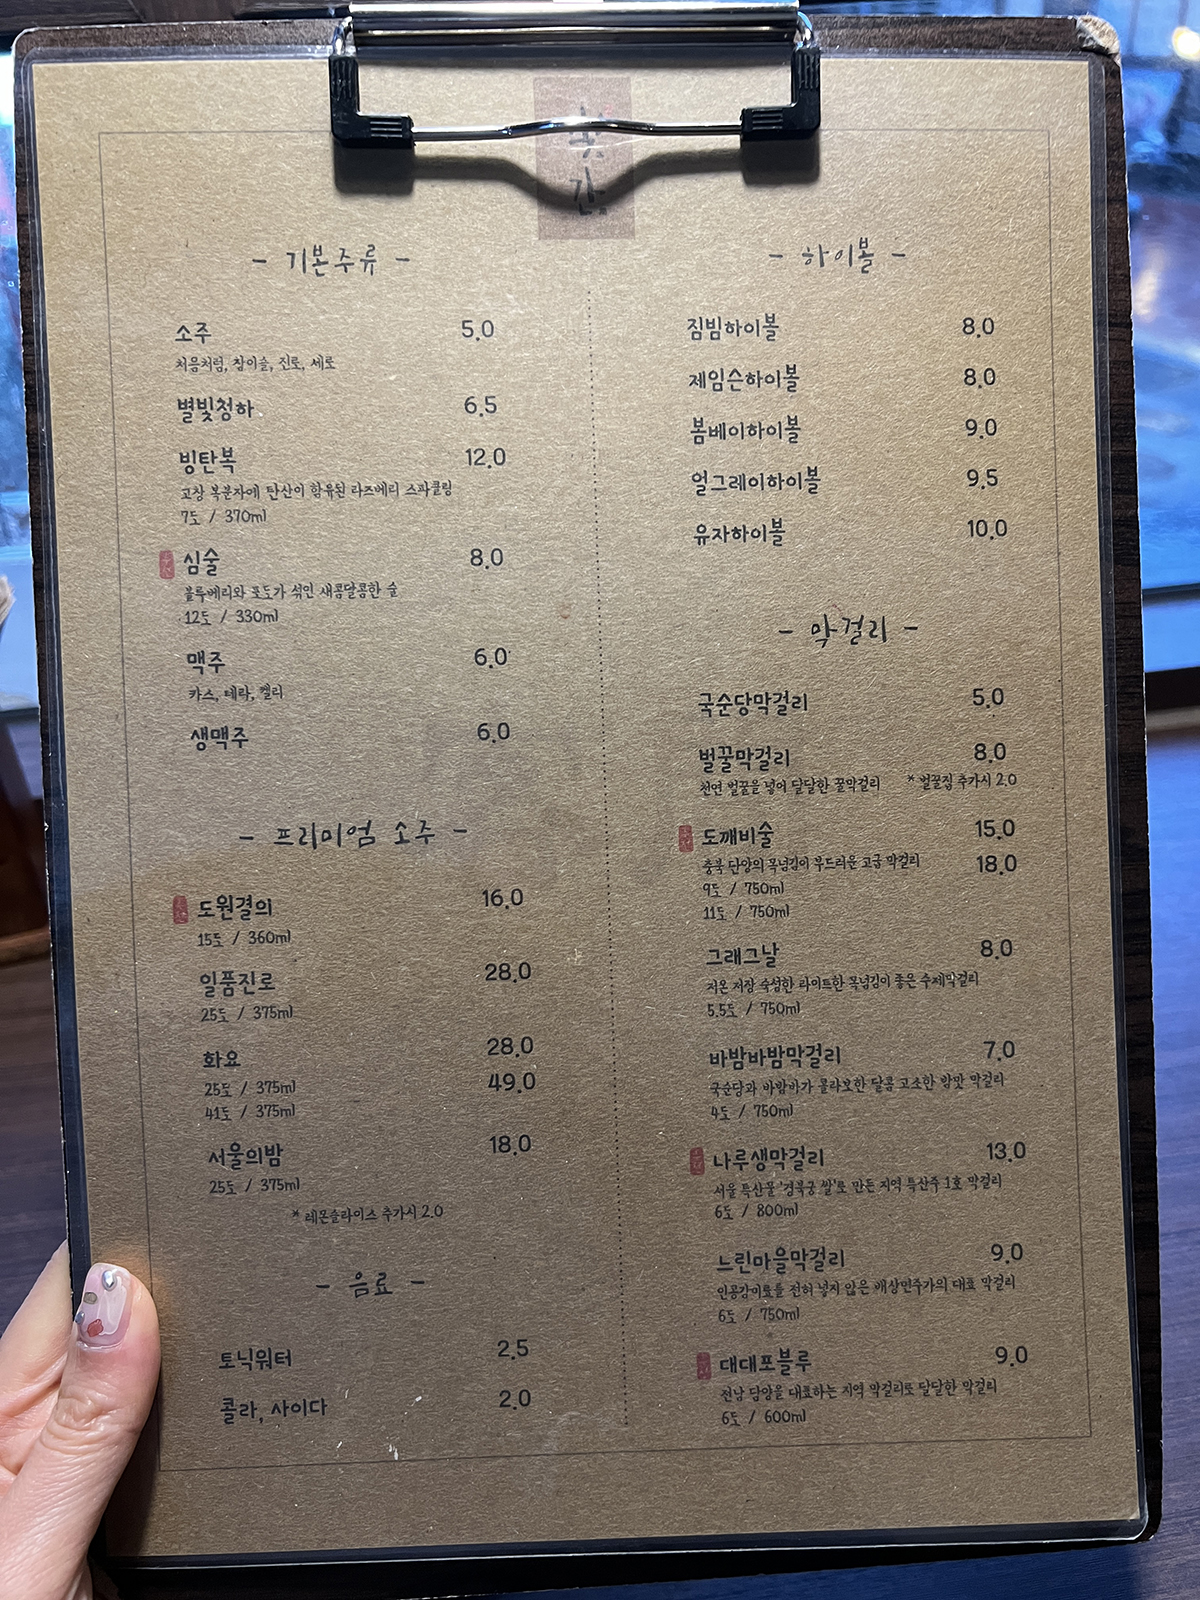 간
- 기본주류 -
소주 5.0
처음처럼, 참이슬, 진로, 새로
별빛청하 6.5
빙탄복 12.0
고창 복분자에 탄산이 함유된 라즈베리 스파클링
7도 / 370ml
심술 8.0
블루베리와 포도가 섞인 새콤달콤한 술
12도 / 330ml
맥주 6.0
카스, 테라, 켈리
생맥주 6.0
- 프리미엄 소주 -
도원결의 16.0
15도 / 360ml
일품진로 28.0
25도 / 375ml
화요 28.0
25도 / 375ml 49.0
41도 / 375ml
서울의밤 18.0
25도 / 375ml
* 레몬슬라이스 추가시 2.0
- 음료 -
토닉워터 2.5
콜라, 사이다 2.0
- 하이볼 -
짐빔하이볼 8.0
제임슨하이볼 8.0
봄베이하이볼 9.0
얼그레이하이볼 9.5
유자하이볼 10.0
- 막걸리 -
국순당막걸리 5.0
벌꿀막걸리 8.0
천연 벌꿀을 넣어 달달한 꿀막걸리 * 벌꿀집 추가시 2.0
도깨비술 15.0
충북 단양의 목넘김이 부드러운 고급 막걸리 18.0
9도 / 750ml
11도 / 750ml
그래그날 8.0
저온 저장 숙성한 라이트한 목넘김이 좋은 수제막걸리
5.5도 / 750ml
바밤바밤막걸리 7.0
국순당과 바밤바가 콜라보한 달콤 고소한 밤맛 막걸리
4도 / 750ml
나루생막걸리 13.0
서울 특산물 '경복궁 쌀'로 만든 지역 특산주 1호 막걸리
6도 / 800ml
느린마을막걸리 9.0
인공감미료를 전혀 넣지 않은 배상면주가의 대표 막걸리
6도 / 750ml
대대포블루 9.0
전남 담양을 대표하는 지역 막걸리로 달달한 막걸리
6도 / 600ml